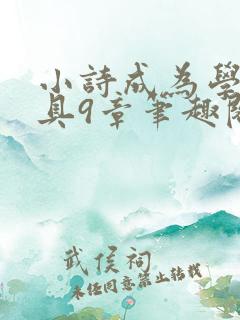 小詩成為學
具9章筆趣閣
武侯祠
未经同意禁止转载